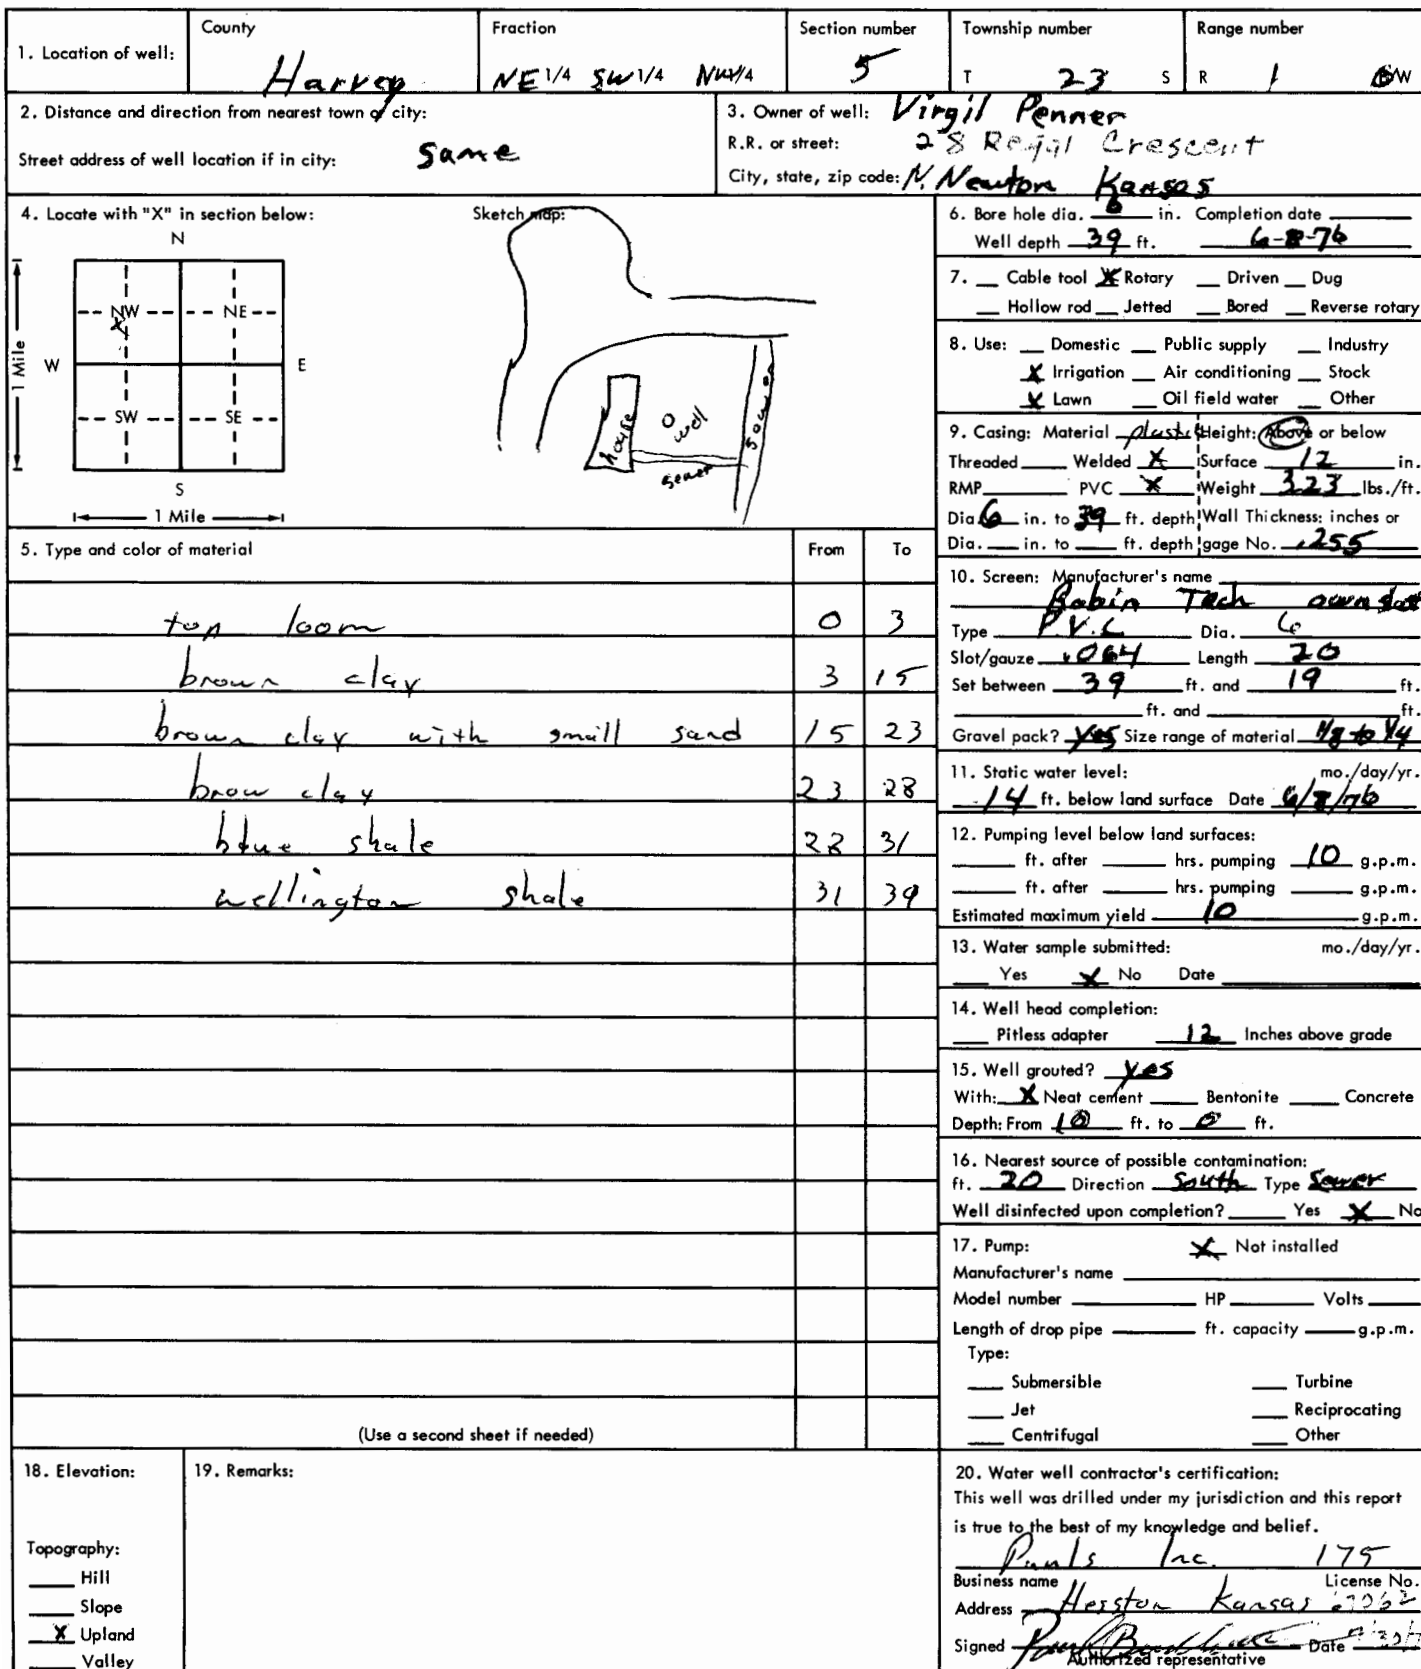 1. Location of well:
County
Harvey
Fraction
NE 1/4 SW 1/4 NW 1/4
Section number
5
Township number
T 23 S
Range number
R 1 E/W
2. Distance and direction from nearest town or city:
Street address of well location if in city: same
3. Owner of well: Virgil Penner
R.R. or street: 28 Regal Crescent
City, state, zip code: N. Newton Kansas
4. Locate with "X" in section below:
N
NW NE
X
W E
SW SE
S
1 Mile
1 Mile
Sketch map:
house
well
sewer
sewer
5. Type and color of material From To
top loom 0 3
brown clay 3 15
brown clay with small sand 15 23
brow clay 23 28
blue shale 28 31
wellington shale 31 39
(Use a second sheet if needed)
6. Bore hole dia. 6 in. Completion date
Well depth 39 ft. 6-8-76
7. Cable tool X Rotary Driven Dug
Hollow rod Jetted Bored Reverse rotary
8. Use: Domestic Public supply Industry
X Irrigation Air conditioning Stock
X Lawn Oil field water Other
9. Casing: Material plastic Height: Above or below
Threaded Welded X Surface 12 in.
RMP PVC X Weight 323 lbs./ft.
Dia. 6 in. to 39 ft. depth Wall Thickness: inches or
Dia. in. to ft. depth gage No. .255
10. Screen: Manufacturer's name
Robin Tech own slot
Type P.V.C Dia. 6
Slot/gauze .064 Length 20
Set between 39 ft. and 19 ft.
ft. and ft.
Gravel pack? yes Size range of material 1/8 to 1/4
11. Static water level: mo./day/yr.
14 ft. below land surface Date 6/8/76
12. Pumping level below land surfaces:
ft. after hrs. pumping 10 g.p.m.
ft. after hrs. pumping g.p.m.
Estimated maximum yield 10 g.p.m.
13. Water sample submitted: mo./day/yr.
Yes X No Date
14. Well head completion:
Pitless adapter 12 Inches above grade
15. Well grouted? yes
With: X Neat cement Bentonite Concrete
Depth: From 10 ft. to 0 ft.
16. Nearest source of possible contamination:
ft. 20 Direction South Type Sewer
Well disinfected upon completion? Yes X No
17. Pump: X Not installed
Manufacturer's name
Model number HP Volts
Length of drop pipe ft. capacity g.p.m.
Type:
Submersible Turbine
Jet Reciprocating
Centrifugal Other
18. Elevation:
Topography:
Hill
Slope
X Upland
Valley
19. Remarks:
20. Water well contractor's certification:
This well was drilled under my jurisdiction and this report
is true to the best of my knowledge and belief.
Pauls Inc. 175
Business name License No.
Address Hesston Kansas 67062
Signed Date
Authorized representative